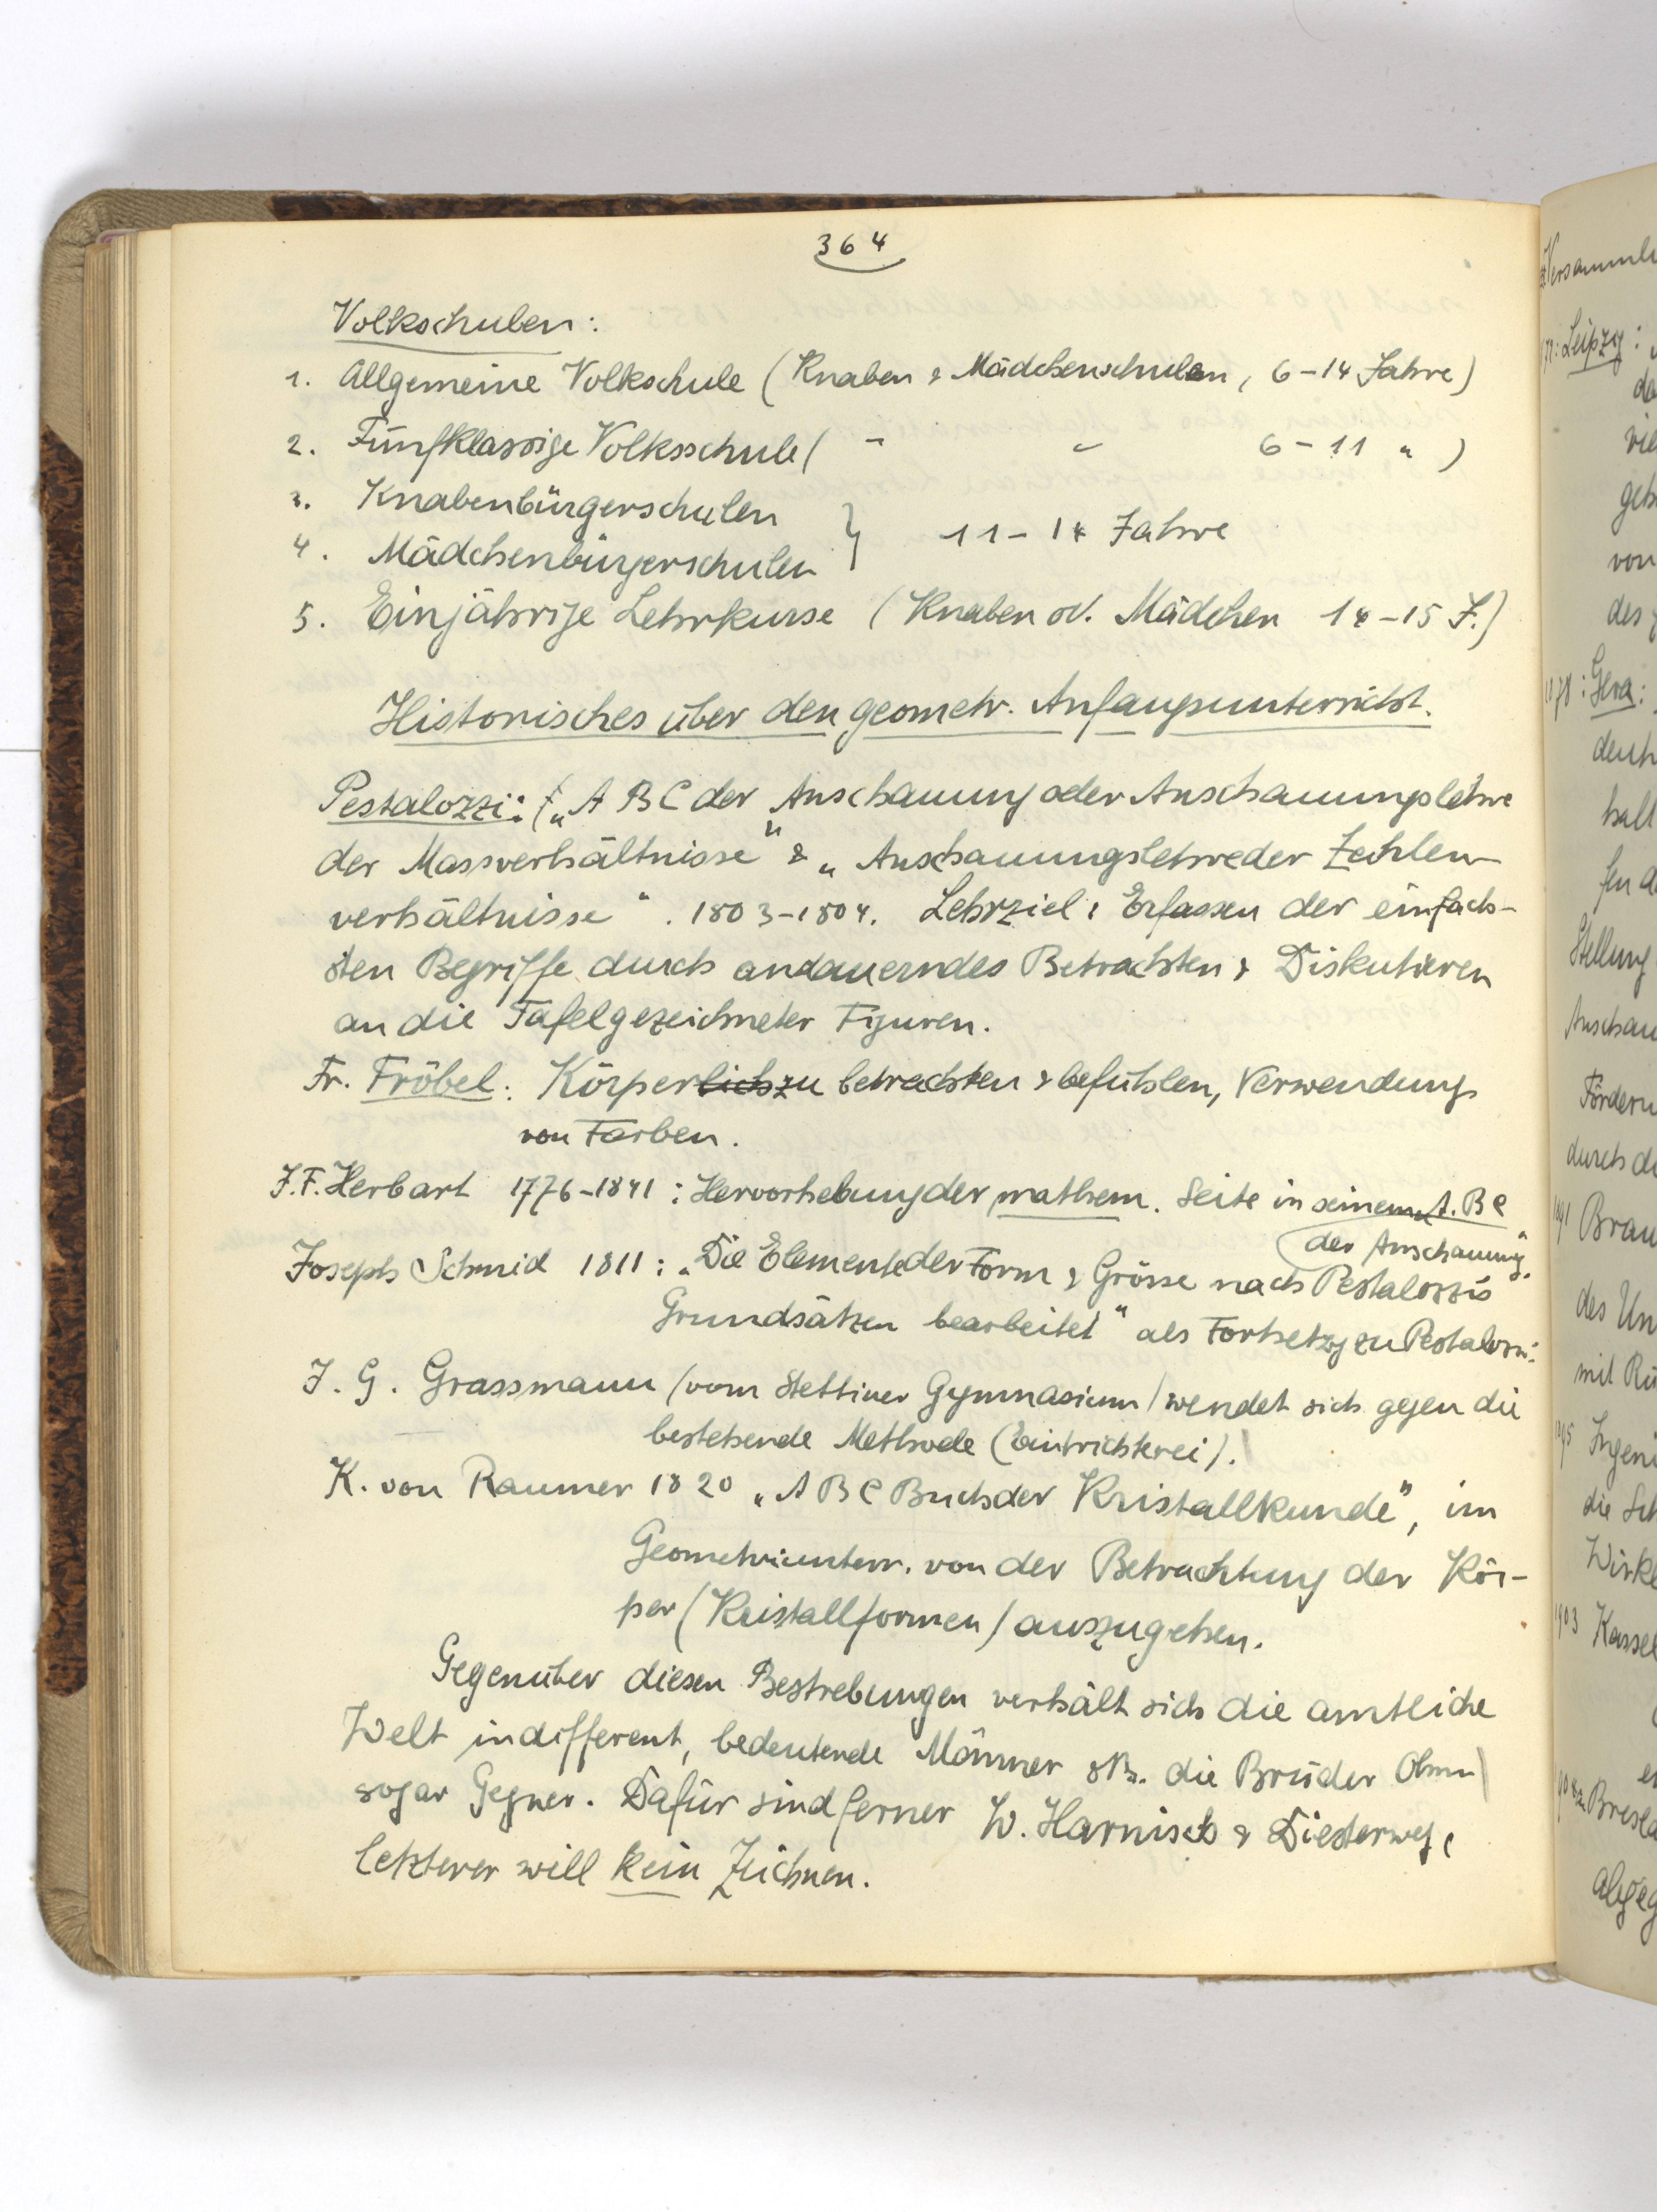 364
Volkschulen:
1. Allgemeine Volkschule (Knaben & Mädchenschulen, 6-14 Jahre)
2. Fünfklassige Volksschule ( " " 6-11 " )
3. Knabenbürgerschulen
4. Mädchenbürgerschulen } 11-14 Jahre
5. Einjährige Lehrkurse (Knaben od. Mädchen 14-15 J.)
Historisches über den geometr. Anfangsunterricht.
Pestalozzi: („A B C der Anschauung oder Anschauungslehre
der Massverhältnisse" & „Anschauungslehre der Zahlen-
verhältnisse". 1803-1804. Lehrziel: Erfassen der einfach-
sten Begriffe durch andauerndes Betrachten & Diskutieren
an die Tafel gezeichneter Figuren.
Fr. Fröbel: Körperlich zu betrachten & befühlen, Verwendung
von Farben.
J.F. Herbart 1776-1841: Hervorhebung der mathem. Seite in seinem A.B C
der Anschauung"
Joseph Schmid 1811: „Die Elemente der Form & Grösse nach Pestalozzis
Grundsätzen bearbeitet" als Fortsetzg zu Pestalozzi.
J. G. Grassmann (vom Stettiner Gymnasium) wendet sich gegen die
bestehende Methode (Eintrichterei).
K. von Raumer 1820 „A B C Buch der Kristallkunde", im
Geometrieunterr. von der Betrachtung der Kör-
per (Kristallformen) auszugehen.
Gegenüber diesen Bestrebungen verhält sich die amtliche
Welt indifferent, bedeutende Männer die Brüder Ohm
sogar Gegner. Dafür sind ferner W. Harnisch & Diesterweg,
letzterer will kein Zeichnen.
Leipzig:
vie
von
des
1878: Gera:
halt
Stellung
Anschau
Fördern
durch di
Brau
des Un
mit Ru
Ingeni
die Sch
Wirk
1903 Kassel
Bresla